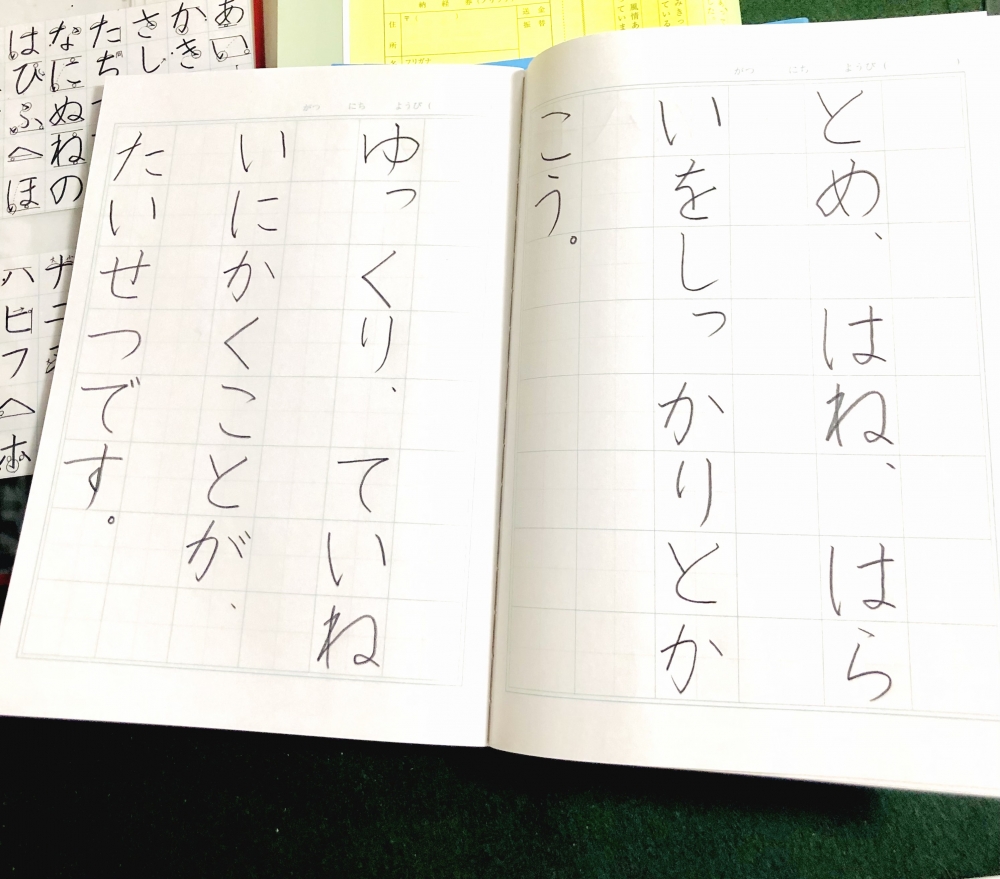 とめ、はね、はら
いをしっかりとか
こう。
ゆっくり、ていね
いにかくことが、
たいせつです。
がつ にち ようび
がつ にち ようび
あい
かき
さし
たち
なにぬねの
はひふへほ
ハヒフヘホ